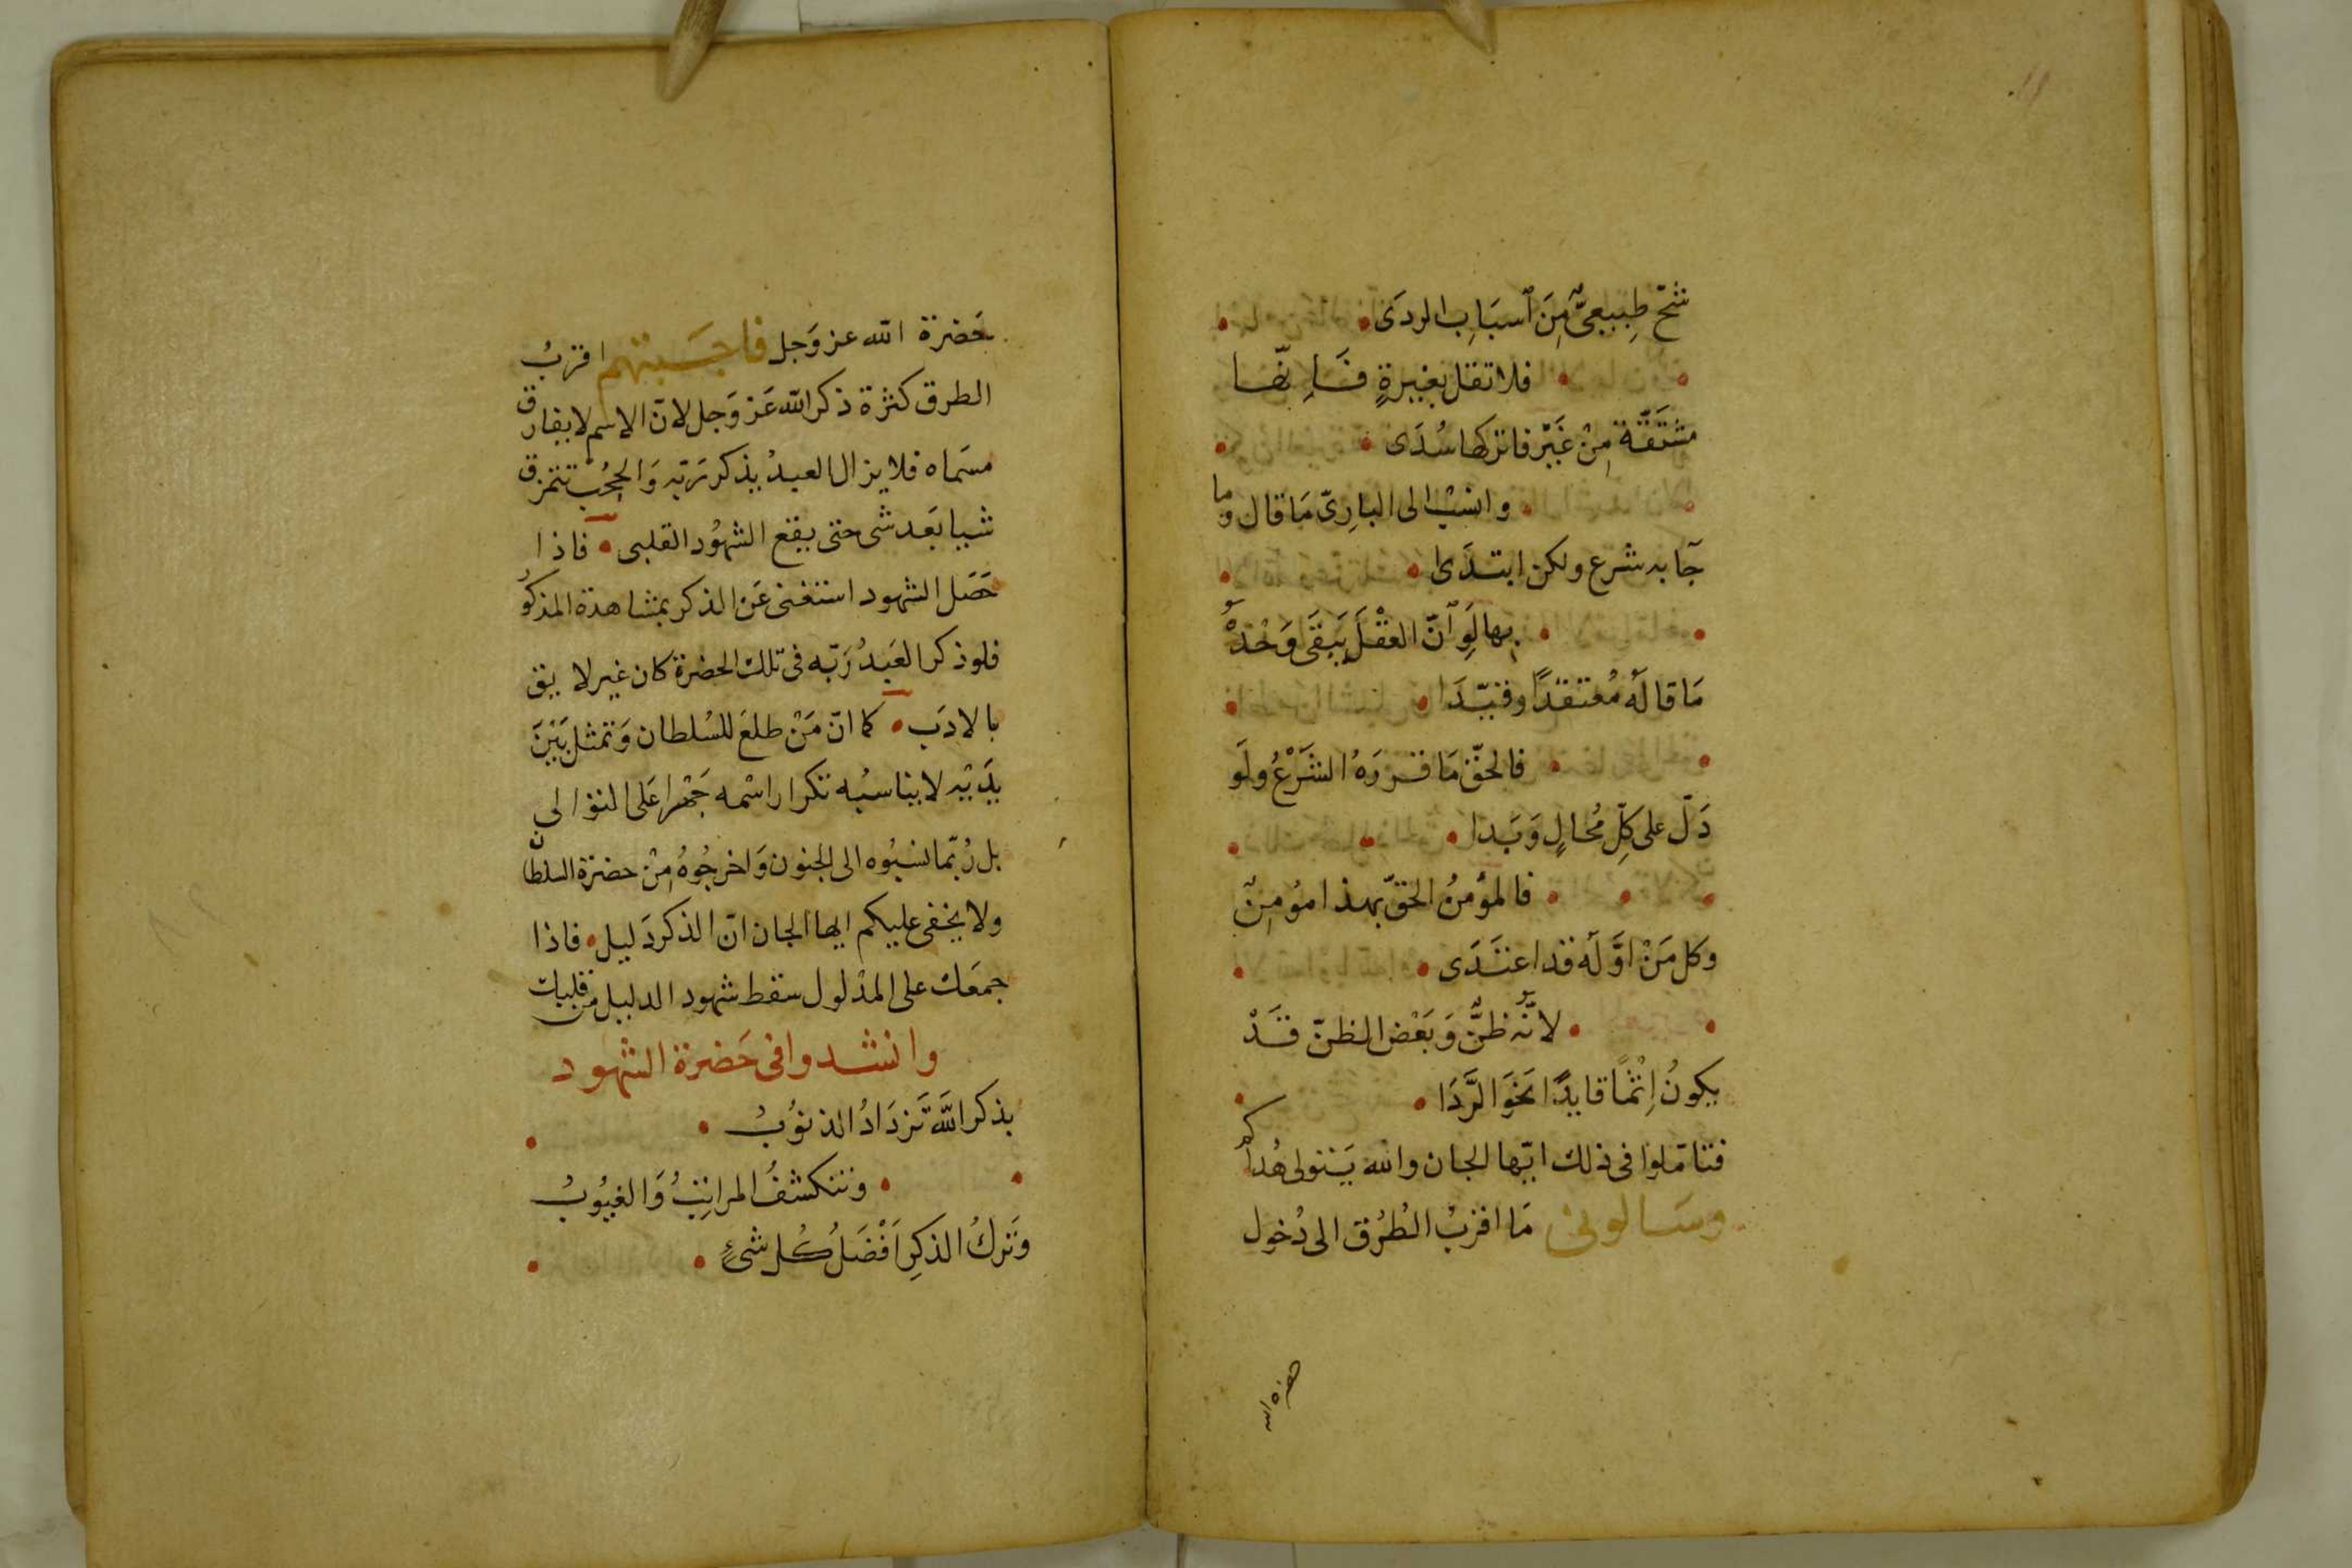 شحّ طِبيعىٌّ مِنَ اَسبَابِ الردَى
فلا تقل بغيرةٍ فَاِنّها
مشتَقَّة مِنْ غَيْرٍ فاتركها سُدَى
وانسُبْ الى البارِىّ مَا قال وما
جَآ به شرع ولكن ابتدَى
بها لَوِ اَنّ العقْلَ يَبقَى وَحْدَهُ
مَا قالهُ مُعتقدًا وفنّدَا
فالحقّ مَا قررَهُ الشَرْعُ ولَو
دَلّ على كلّ مُحالٍ وَبَدا
فالمؤمنُ الحقّ بهذا مؤمِنٌ
وكل مَنْ اوَّلَه قد اعتَدَى
لانّهُ ظنٌّ وَبَعْض الظنّ قَدْ
يكونُ اِثْمًا قايدًا نحَوَ الرَّدَا
فتامّلوا فى ذلك ايّها الجان والله يَتولى هُداكم
وسَالونى مَا اقربُ الطُرُق الى دُخول
حضرة الله
حَضرة الله عز وَجل فاجَبتهم اقربُ
الطرق كثرة ذكر الله عَز وَجل لانّ الاسم لا يفارق
مسَماه فلا يزال العبدُ يذكر رَبّه وَالحُجُب تتمزق
شيا بَعد شى حتى يقع الشهُود القلبى فاذا
حَصَل الشهود استغنى عَن الذكر بمشاهدة المذكو
فلو ذكر العَبدُ رَبّه فى تلك الحضرة كان غير لايق
بالادَب كما انّ مَنْ طلعَ للسُلطان وَتمثل بَيْنَ
يدَيْه لا يناسبُه تكرار اسْمه جَهْرا عَلى التوالى
بل رُبّما نسبُوه الى الجنون وَاخرجُوهُ مِنْ حضرة السلطان
ولا يخفى عليكم ايها الجان انّ الذكر دَليل فاذا
جمعَك على المدْلول سقط شهود الدليل من قلبك
وانشدوا فى حَضرة الشهود
بذكر اللَّه تَزدَادُ الذنوُبُ
وتنكشفُ المراتِبُ وَالغيُوبُ
وَتَركُ الذكرِ اَفْضَلُ كُل شىءٍ